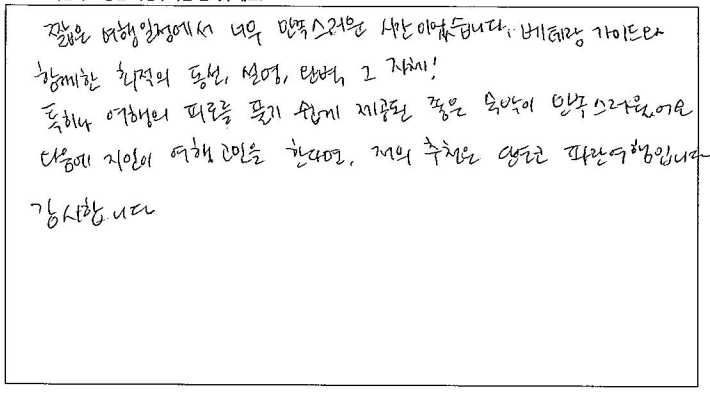 짧은 여행일정에서 너무 만족스러운 시간이었습니다. 베테랑 가이드와
함께한 최적의 동선, 설명, 완벽, 그 자체!
특히나 여행의 피로를 풀기 쉽게 제공된 좋은 숙박이 만족스러웠어요
다음에 지인이 여행 고민을 한다면, 저의 추천은 단연코 파란여행입니다
감사합니다